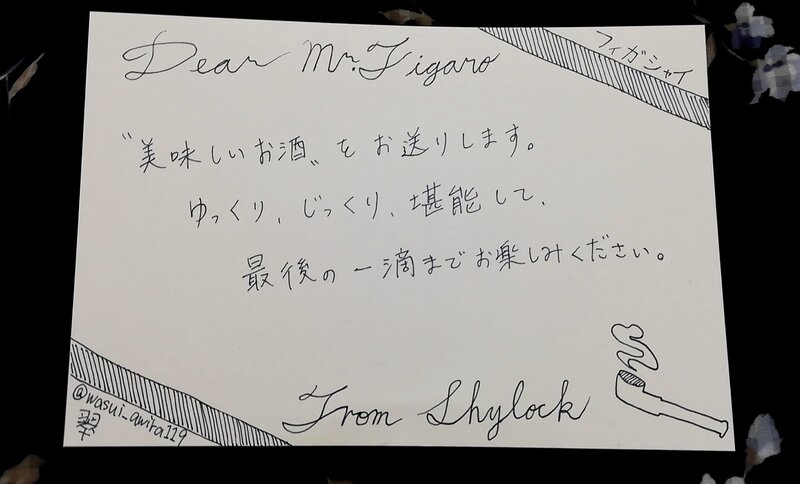 Dear Mr.Figaro
フィガシャイ
"美味しいお酒"をお送りします。
ゆっくり、じっくり、堪能して、
最後の一滴までお楽しみください。
From Shylock
@wasui_amra119
翠